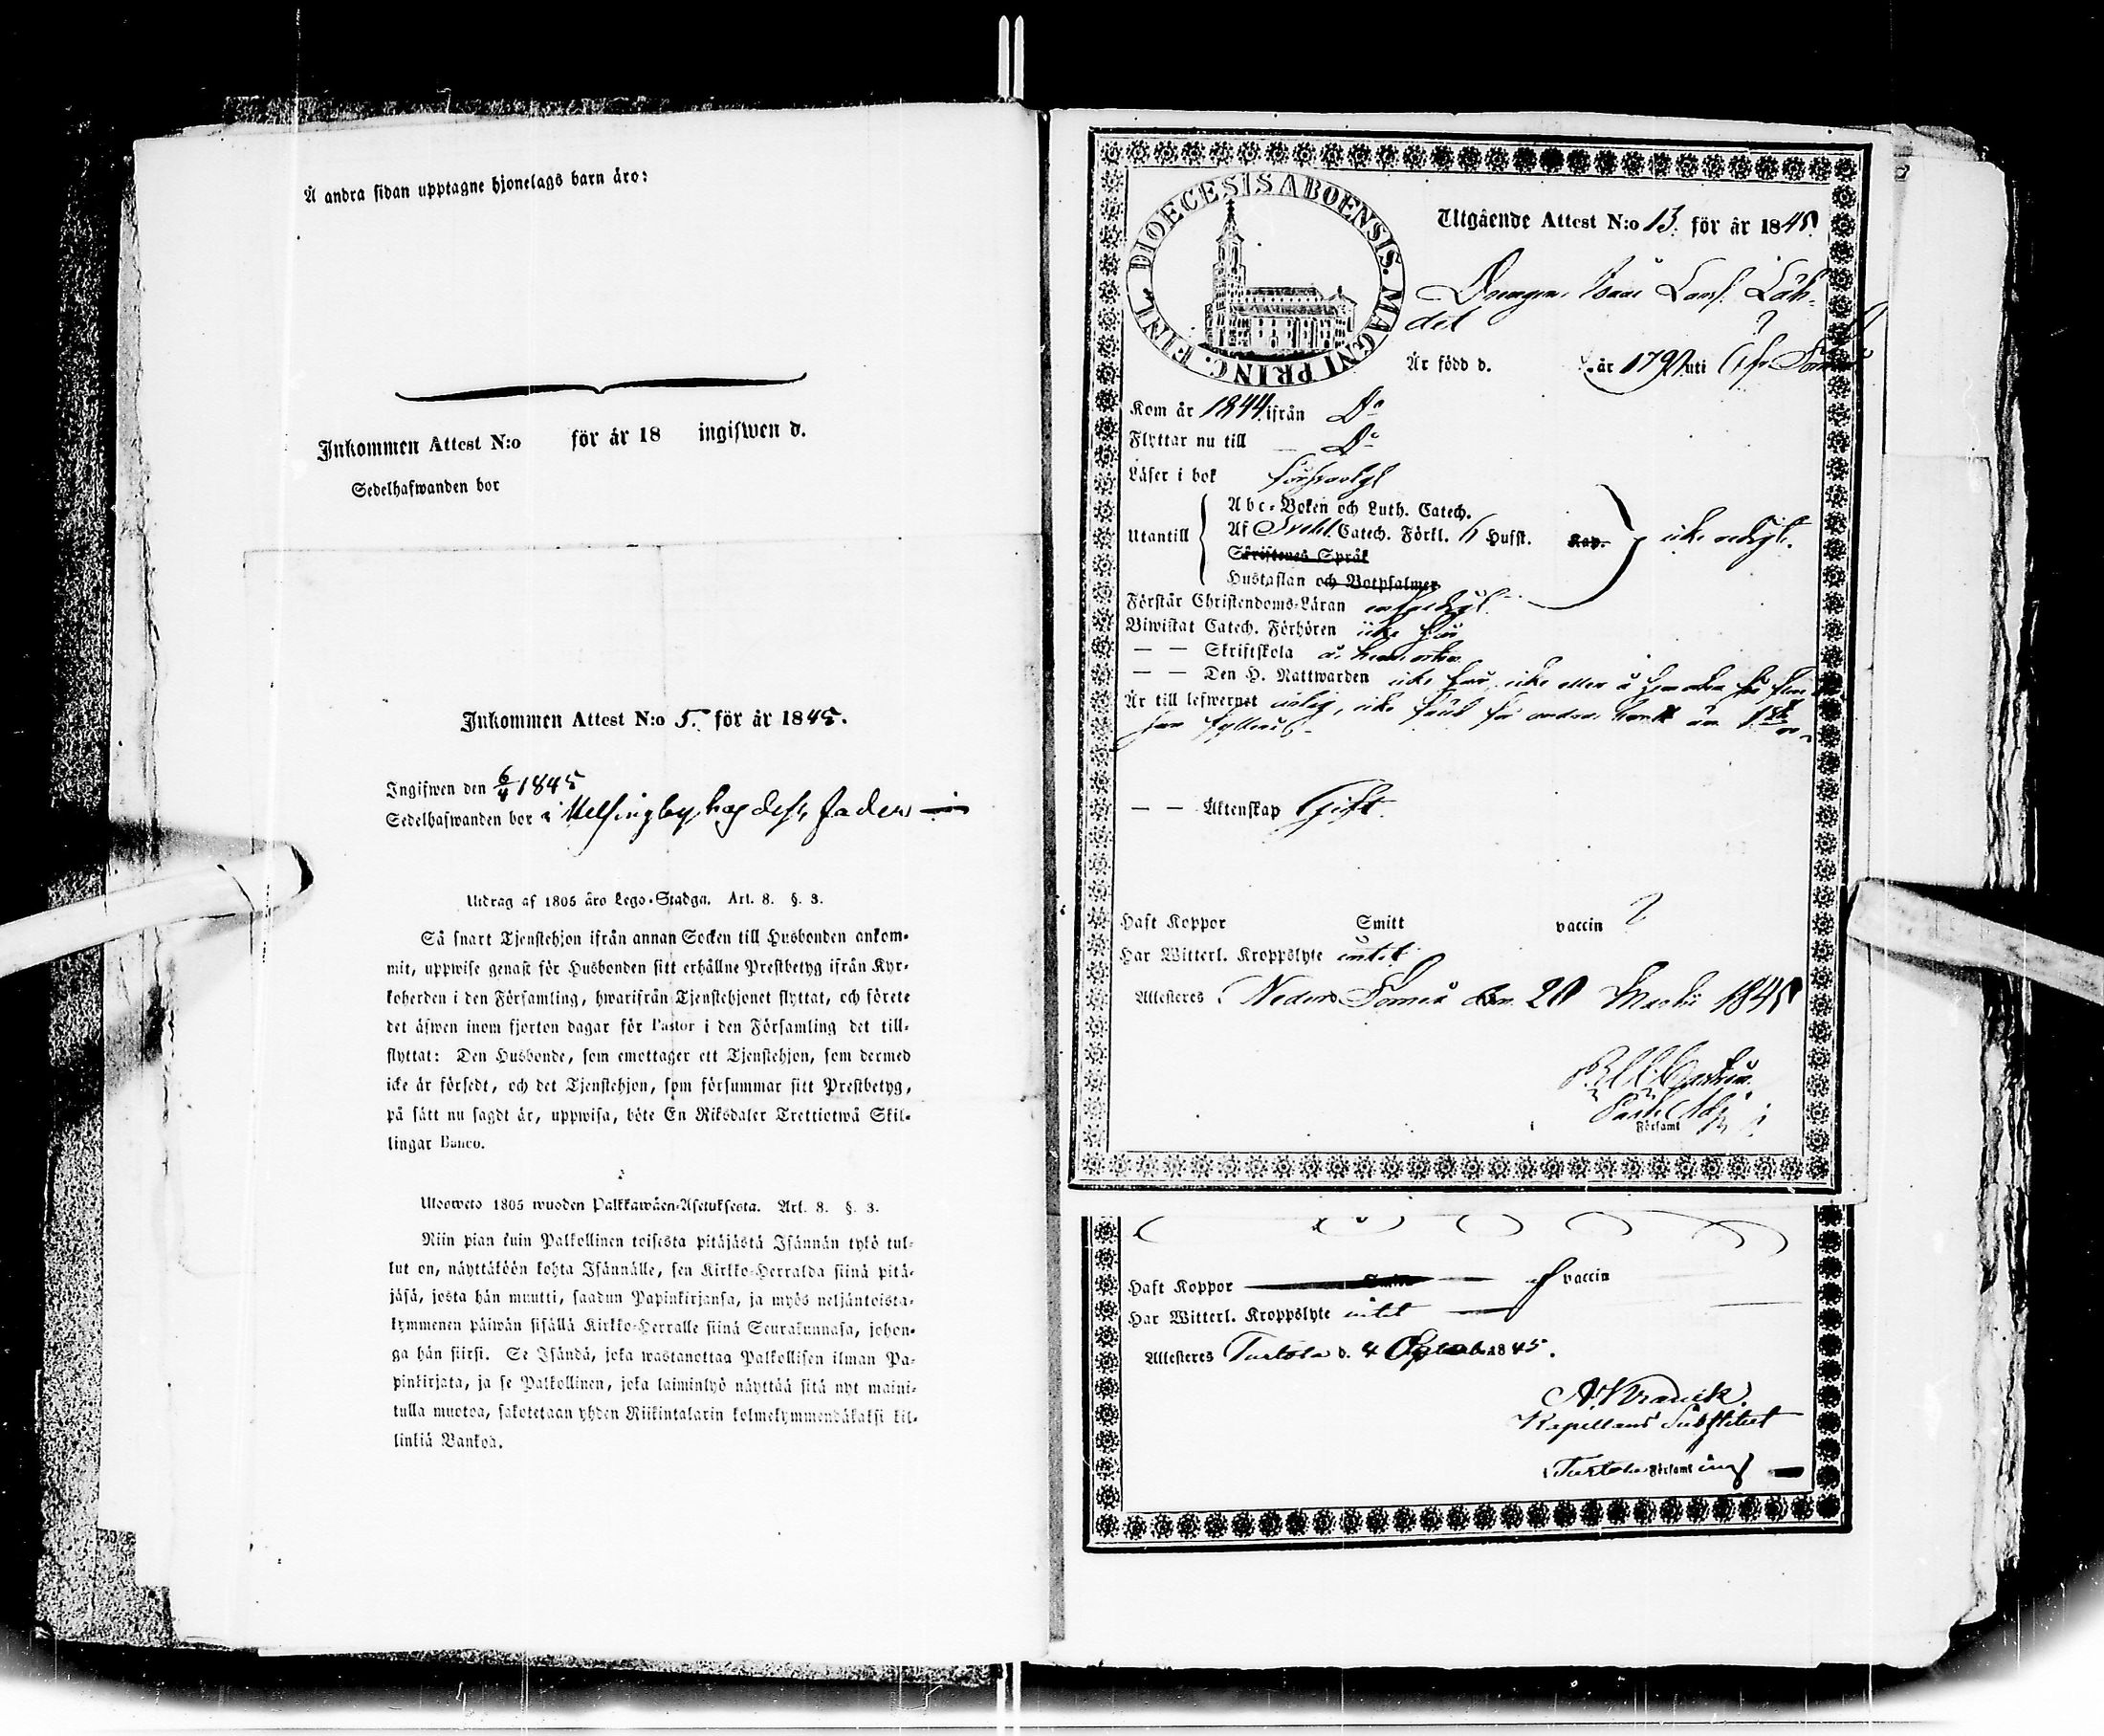 Å andra sidan upptagne hjonelags barn äro:
Inkommen Attest N:o för år 18 ingifwen d.
Sedelhafwanden bor
Inkommen Attest N:o 5. för år 1845.
Ingifwen den 6/4 1845
Sedelhafwanden bor i Helsingby hos dess fader
Utdrag af 1805 års Lego-Stadga. Art. 8. §. 3.
Så snart Tjenstehjon ifrån annan Socken till Husbonden ankom-
mit, uppwise genast för Husbonden sitt erhållne Prestbetyg ifrån Kyr-
koherden i den Församling, hwarifrån Tjenstehjonet flyttat, och förete
det äfwen inom fjorton dagar för Pastor i den Församling det till-
flyttat: Den Husbonde, som emottager ett Tjenstehjon, som dermed
icke är försedt, och det Tjenstehjon, som försummar sitt Prestbetyg,
på sätt nu sagdt är, uppwisa, böte En Riksdaler Trettiotwå Skil-
lingar Banco.
Ulosweto 1805 wuoden Palkkawäen-Asetuksesta. Art. 8. §. 3.
Niin pian kuin Palkollinen toisesta pitäjästä Isännän tykö tul-
lut on, näyttäköön kohta Isännälle, sen Kirkko-Herralda siinä pitä-
jäsä, josta hän muutti, saadun Papinkirjansa, ja myös neljäntoista-
kymmenen päiwän sisällä Kirkko-Herralle siinä Seurakunnasa, johon-
ga hän siirsi. Se Isändä, joka wastanottaa Palkollisen ilman Pa-
pinkirjata, ja se Palkollinen, joka laiminlyö näyttää sitä nyt maini-
tulla muotoa, sakotetaan yhden Riikintalarin kolmekymmendäkaksi kil-
linkiä Bankoa.
DIOECESIS ABOENSIS. MAGNI PRINC. FINL.
Utgående Attest N:o 13. för år 1845
Drengen Isaac
Är född d. år 179 uti
Kom år 1844 ifrån Do
Flyttar nu till Do
Läser i bok förswarligt
Abc-Boken och Luth. Catech.
Utantill Af Svebel. Catech. Förkl. 6 Hufst. Kap.
Skriftenes Språk
Hustaflan och Botpsalmer
Förstår Christendoms-Läran
Biwistat Catech. Förhören icke här
— — Skriftskola å hemorten
— — Den H. Nattwarden icke här, icke eller å hemorten
Är till lefwernet
— — Äktenskap Gift.
Haft Koppor Smitt vaccin ?
Har Witterl. Kroppslyte intet
Attesteres i Neder Torneå den 20 Martii 1845
i Församl
Haft Koppor Smitt af vaccin
Har Witterl. Kroppslyte intet
Attesteres Turtola d. 4 1845.
Kapellans Substitut
i Turtola Församling